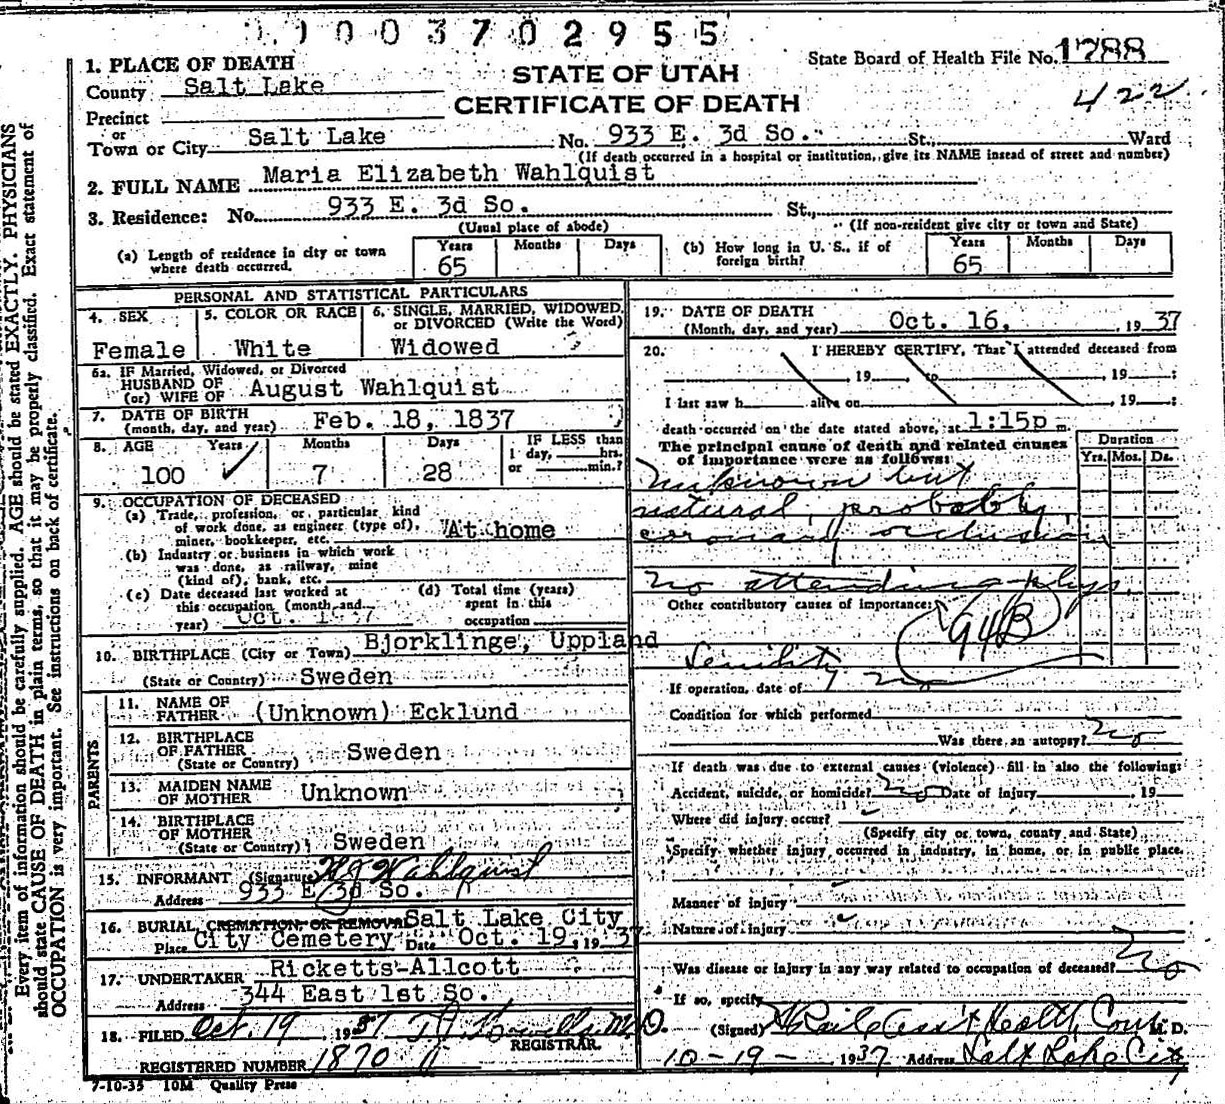 1003702955
State Board of Health File No. 1788
422
STATE OF UTAH
CERTIFICATE OF DEATH
1. PLACE OF DEATH
County Salt Lake
Precinct
or
Town or City Salt Lake No. 933 E. 3d So. St., Ward
(If death occurred in a hospital or institution, give its NAME insead of street and number)
2. FULL NAME Maria Elizabeth Wahlquist
3. Residence: No. 933 E. 3d So. St.,
(Usual place of abode) (If non-resident give city or town and State)
(a) Length of residence in city or town where death occurred. Years 65 Months Days
(b) How long in U. S., if of foreign birth? Years 65 Months Days
PERSONAL AND STATISTICAL PARTICULARS
4. SEX Female
5. COLOR OR RACE White
6. SINGLE, MARRIED, WIDOWED, or DIVORCED (Write the Word) Widowed
6a. IF Married, Widowed, or Divorced
HUSBAND OF
(or) WIFE OF August Wahlquist
7. DATE OF BIRTH
(month, day, and year) Feb. 18, 1837
8. AGE Years Months Days IF LESS than
1 day, hrs.
or min.?
100 7 28
9. OCCUPATION OF DECEASED
(a) Trade, profession, or particular kind
of work done, as engineer (type of),
miner, bookkeeper, etc. At home
(b) Industry or business in which work
was done, as railway, mine
(kind of), bank, etc.
(c) Date deceased last worked at
this occupation (month and
year) Oct. 1937
(d) Total time (years)
spent in this
occupation
10. BIRTHPLACE (City or Town) Bjorklinge, Uppland
(State or Country) Sweden
PARENTS
11. NAME OF
FATHER (Unknown) Ecklund
12. BIRTHPLACE
OF FATHER
(State or Country) Sweden
13. MAIDEN NAME
OF MOTHER Unknown
14. BIRTHPLACE
OF MOTHER
(State or Country) Sweden
15. INFORMANT (Signature) Wahlquist
Address 933 E 3d So.
16. BURIAL, CREMATION, OR REMOVAL Salt Lake City
Place City Cemetery Date Oct. 19, 19 37
17. UNDERTAKER Ricketts-Allcott
Address 344 East 1st So.
18. FILED Oct. 19 1937 M.D.
REGISTRAR.
REGISTERED NUMBER 1870
7-10-35 10M Quality Press
19. DATE OF DEATH
(Month, day, and year) Oct. 16, 19 37
20. I HEREBY CERTIFY, That I attended deceased from
, 19 to , 19 :
I last saw h alive on , 19 :
death occurred on the date stated above, at 1:15p m.
The principal cause of death and related causes
of importance were as follows:
Duration
Yrs. Mos. Ds.
Unknown but
natural, probably
coronary occlusion
No attending phys.
Other contributory causes of importance:
94B
Senility
If operation, date of no
Condition for which performed
Was there an autopsy? no
If death was due to external causes (violence) fill in also the following:
Accident, suicide, or homicide? no Date of injury , 19
Where did injury occur?
(Specify city or town, county and State)
Specify whether injury occurred in industry, in home, or in public place.
Manner of injury
Nature of injury
Was disease or injury in any way related to occupation of deceased? No
If so, specify
(Signed) Health Com M. D.
10-19- 1937 Address Salt Lake City
Every item of information should be carefully supplied. AGE should be stated EXACTLY. PHYSICIANS
should state CAUSE OF DEATH in plain terms, so that it may be properly classified. Exact statement of
OCCUPATION is very important. See instructions on back of certificate.